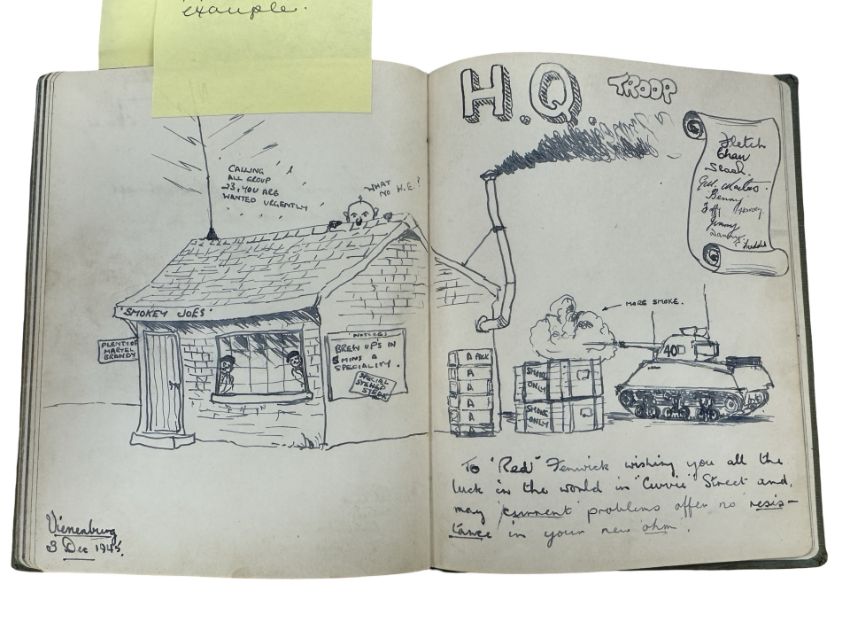 example.
CALLING
ALL GROUP
23, YOU ARE
WANTED URGENTLY
WHAT
NO H.E.?
'SMOKEY JOES'
PLENTY OF
MARTEL
BRANDY
NOTICES
BREW UPS IN
5 MINS A
SPECIALITY.
SPECIAL
STEWED
STEAK
Vienenburg
3 Dec 1945.
H.Q. TROOP
Fletch
Chan
Slash.
Benny
Jimmy
Danny
MORE SMOKE.
40
A PACK
A
A
A
A
A
SMOKE
ONLY
SMOKE
ONLY
To "Red" Fenwick wishing you all the
luck in the world in "Currie" Street and
may "current" problems offer no resis-
tance in your new ohm.